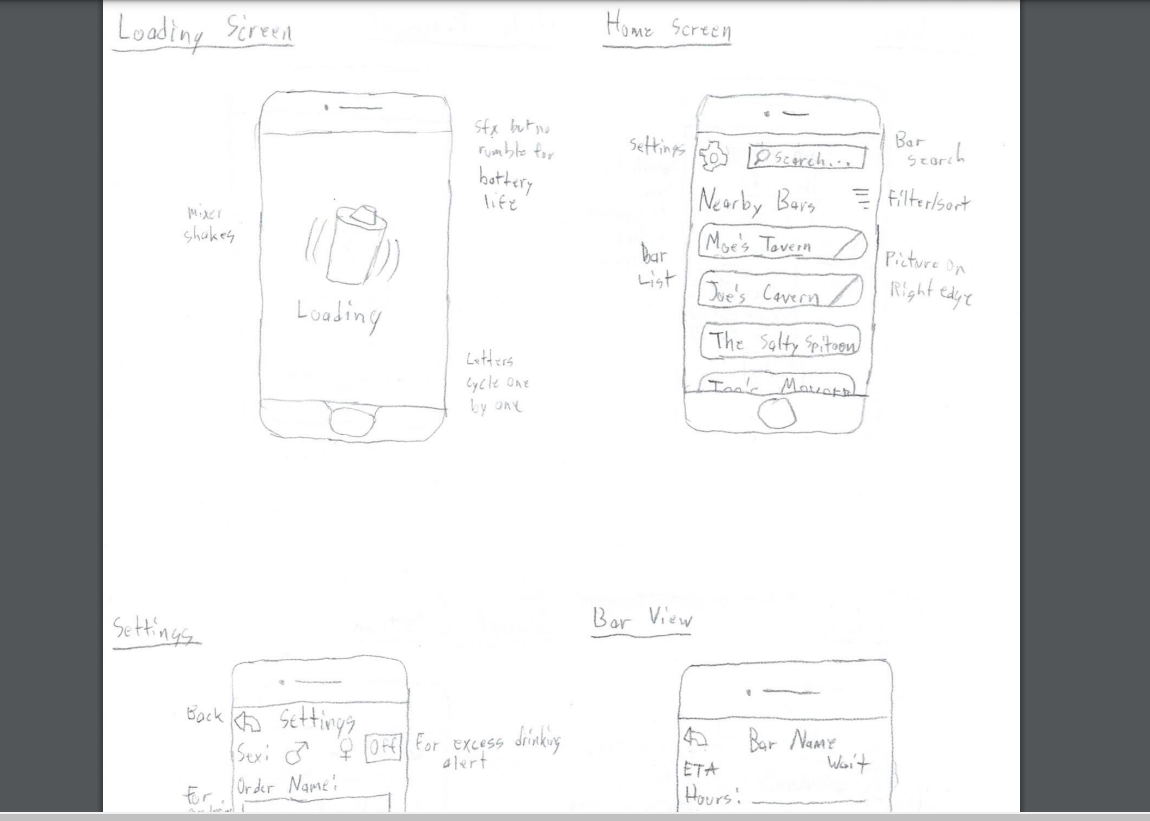 Loading Screen
sfx but no
rumble for
battery
life
mixer
shakes
Loading
Letters
cycle one
by one
Home Screen
Settings
Search...
Bar
search
Nearby Bars
Filter/sort
Moe's Tavern
Bar
List
Picture on
Right edge
Joe's Cavern
The Salty Spitoon
Settings
Back
Settings
Sex: ♂ ♀ Off
For excess drinking
alert
Order Name:
For
Bar View
Bar Name
ETA
Wait
Hours: